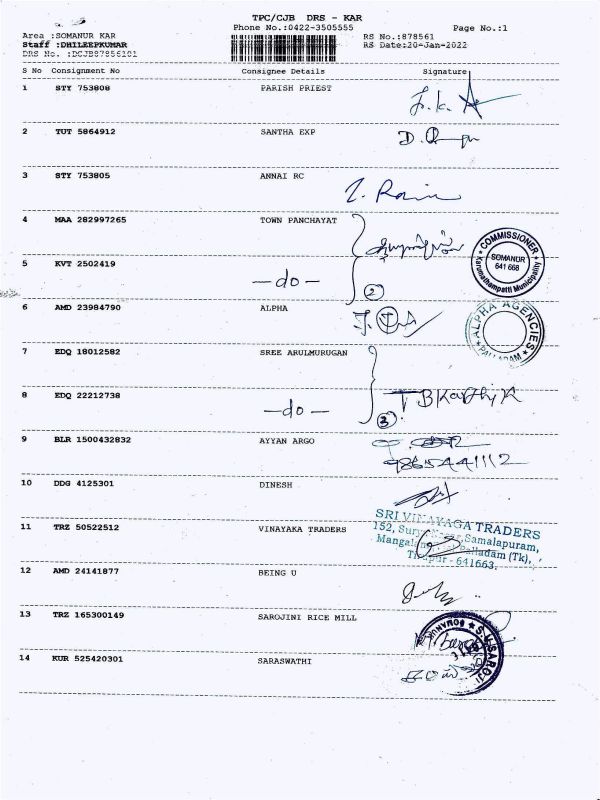 TPC/CJB DRS - KAR
Phone No.:0422-3505555 Page No.:1
Area :SOMANUR KAR RS No.:878561
Staff :DHILEEPKUMAR RS Date:20-Jan-2022
DRS No. :DCJB87856101
S No Consignment No Consignee Details Signature
1 STY 753808 PARISH PRIEST
2 TUT 5864912 SANTHA EXP
3 STY 753805 ANNAI RC
4 MAA 282997265 TOWN PANCHAYAT
COMMISSIONER
SOMANUR
641 668
Karumathampatti Municipality
5 KVT 2502419 —do— 2
6 AMD 23984790 ALPHA
ALPHA AGENCIES
PALLADAM
7 EDQ 18012582 SREE ARULMURUGAN
8 EDQ 22212738 —do— 3 T B Karthik
9 BLR 1500432832 AYYAN ARGO
9865441112
10 DDG 4125301 DINESH
SRI VINAYAGA TRADERS
152, Samalapuram,
Palladam (Tk),
Tirupur - 641663.
11 TRZ 50522512 VINAYAKA TRADERS
12 AMD 24141877 BEING U
13 TRZ 165300149 SAROJINI RICE MILL
14 KUR 525420301 SARASWATHI